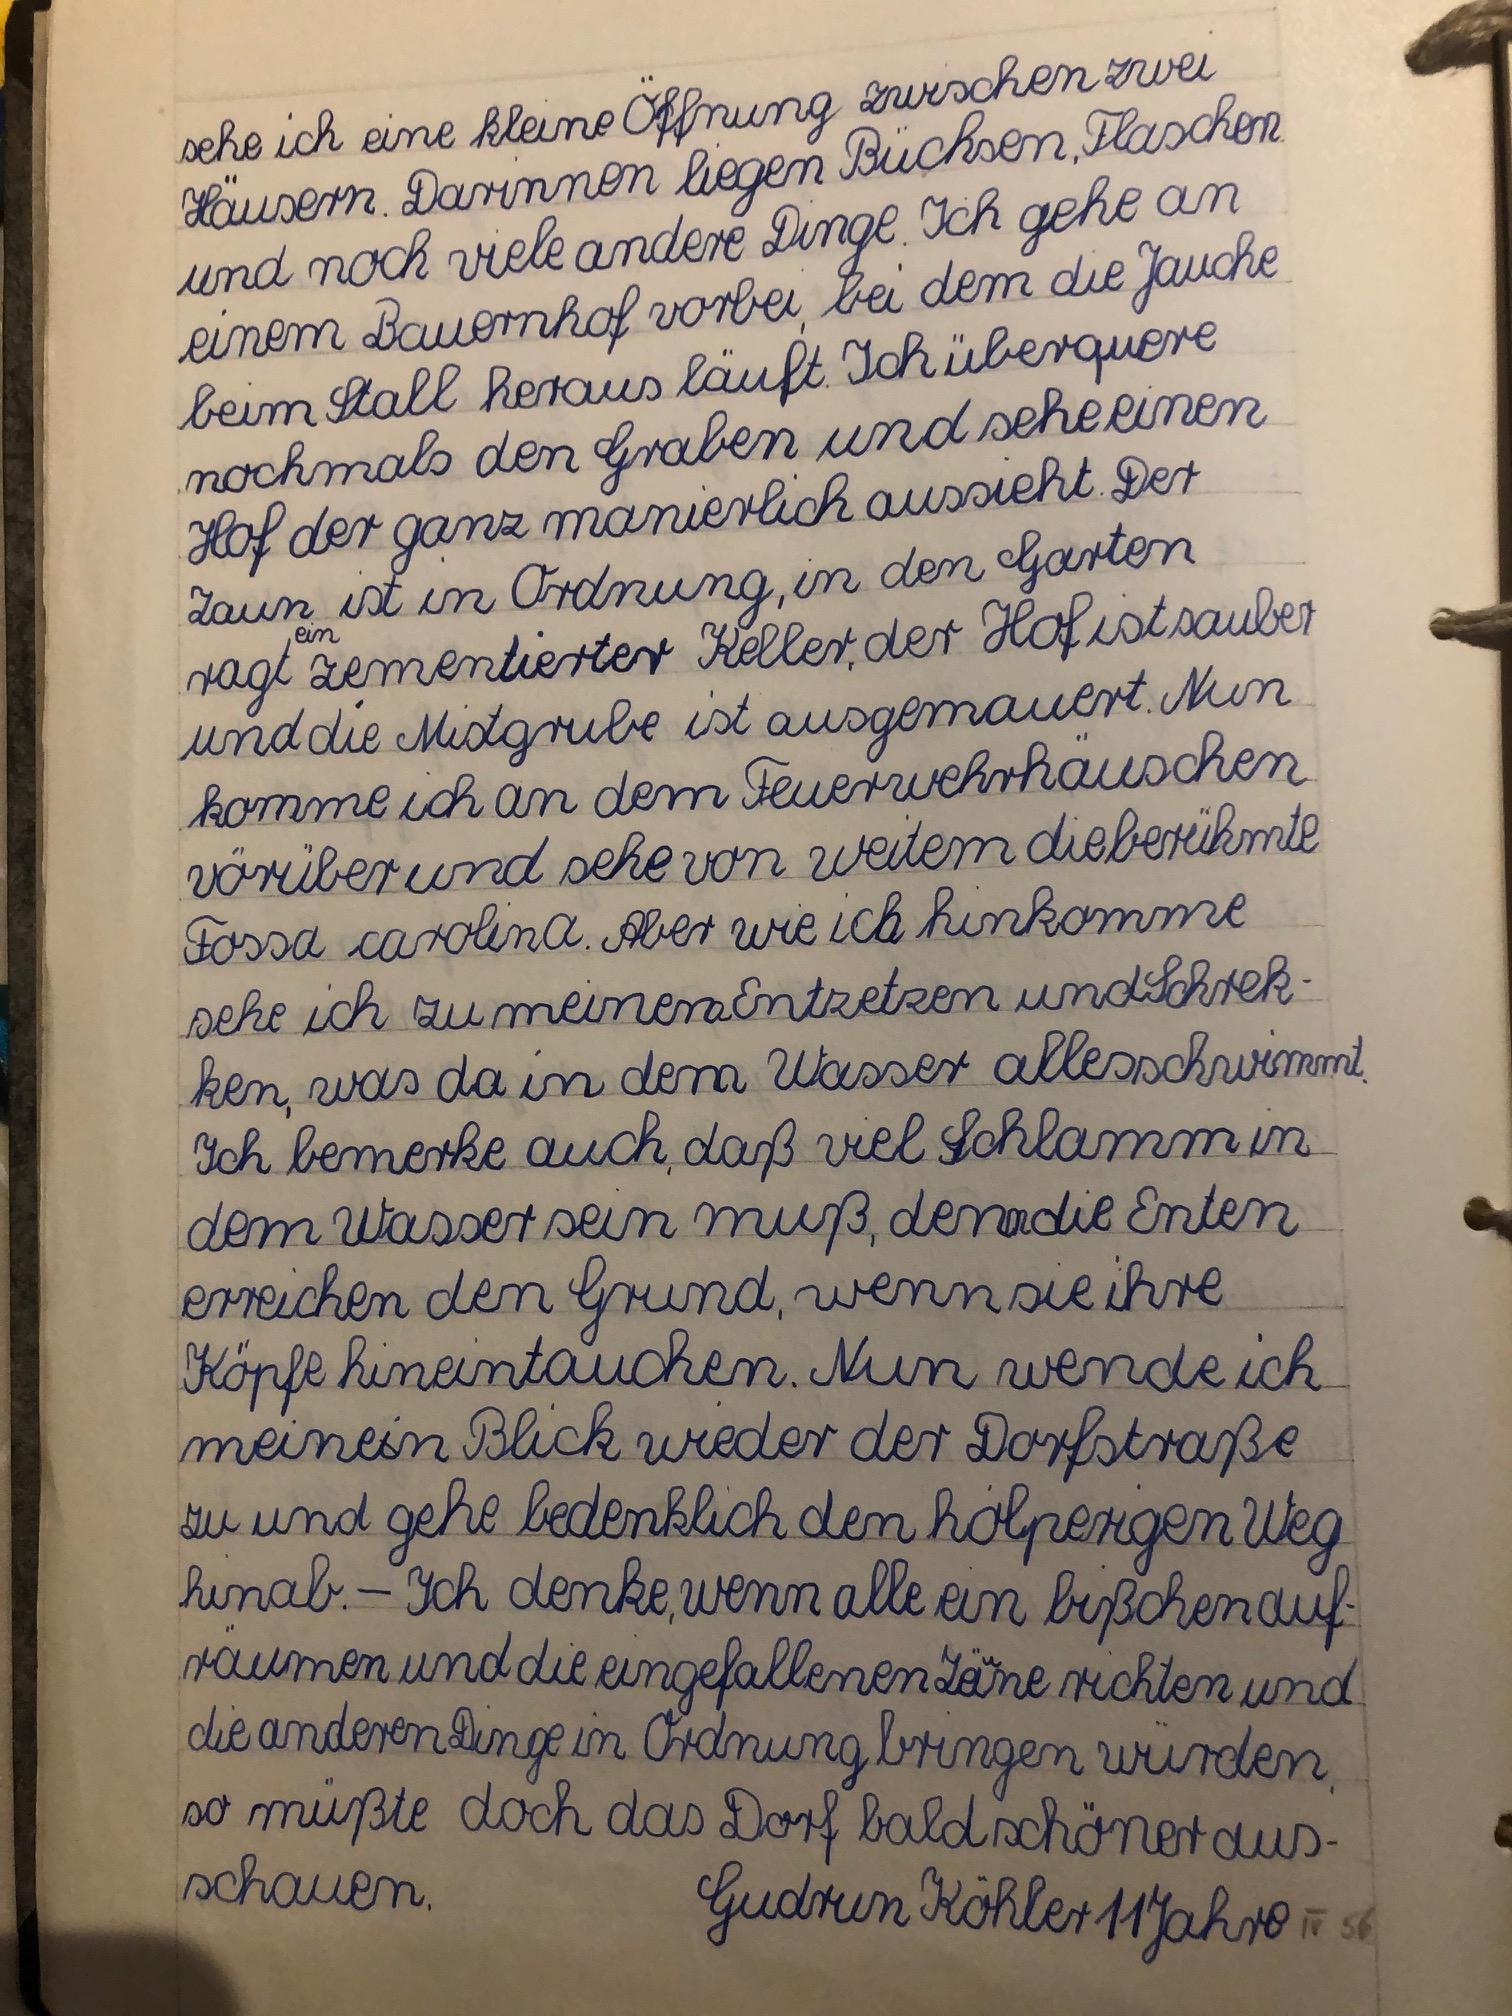 sehe ich eine kleine Öffnung zwischen zwei
Häusern. Darinnen liegen Büchsen, Flaschen
und noch viele andere Dinge. Ich gehe an
einem Bauernhof vorbei, bei dem die Jauche
beim Stall heraus läuft. Ich überquere
nochmals den Graben und sehe einen
Hof der ganz manierlich aussieht. Der
Zaun ist in Ordnung, in den Garten
ragt ein zementierter Keller, der Hof ist sauber
und die Mistgrube ist ausgemauert. Nun
komme ich an dem Feuerwehrhäuschen
vörüber und sehe von weitem die berühmte
Fossa carolina. Aber wie ich hinkomme
sehe ich zu meinem Entzetzen und Schrek-
ken, was da in dem Wasser alles schwimmt.
Ich bemerke auch, daß viel Schlamm in
dem Wasser sein muß, denn die Enten
erreichen den Grund, wenn sie ihre
Köpfe hineintauchen. Nun wende ich
meinein Blick wieder der Dorfstraße
zu und gehe bedenklich den holperigen Weg
hinab. – Ich denke, wenn alle ein bißchen auf-
räumen und die eingefallenen Zäune richten und
die anderen Dinge in Ordnung bringen würden,
so müßte doch das Dorf bald schöner aus-
schauen. Gudrun Köhler 11 Jahre IV 56